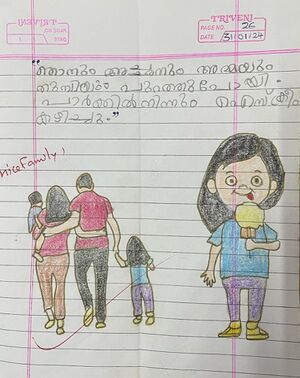 TRIVENI
PAGE NO. 26
DATE 31/01/24
"ഞാനും അച്ഛനും അമ്മയും
തുമ്പിയും പുറത്തുപോയി.
പാർത്തിൽനിന്നും ഐസ്ക്രീം
കഴിച്ചു."
nice Family,